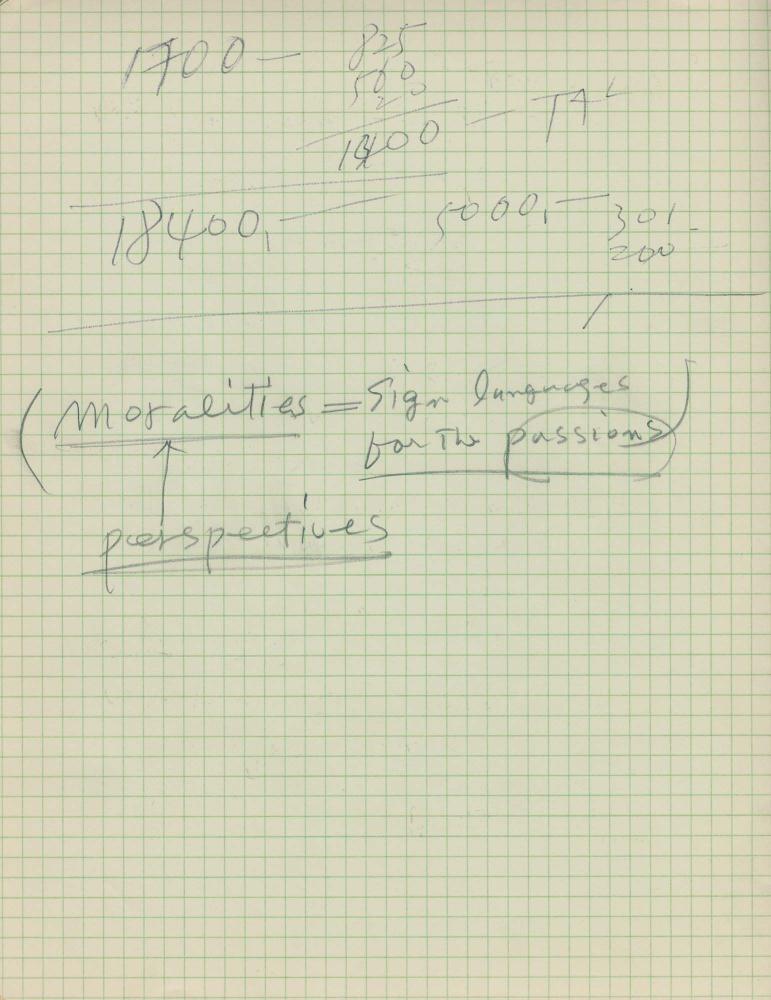 1700 —
825
560
1400 —
18400, —
5000, — 301
200
(moralities = sign languages
for the passions)
perspectives